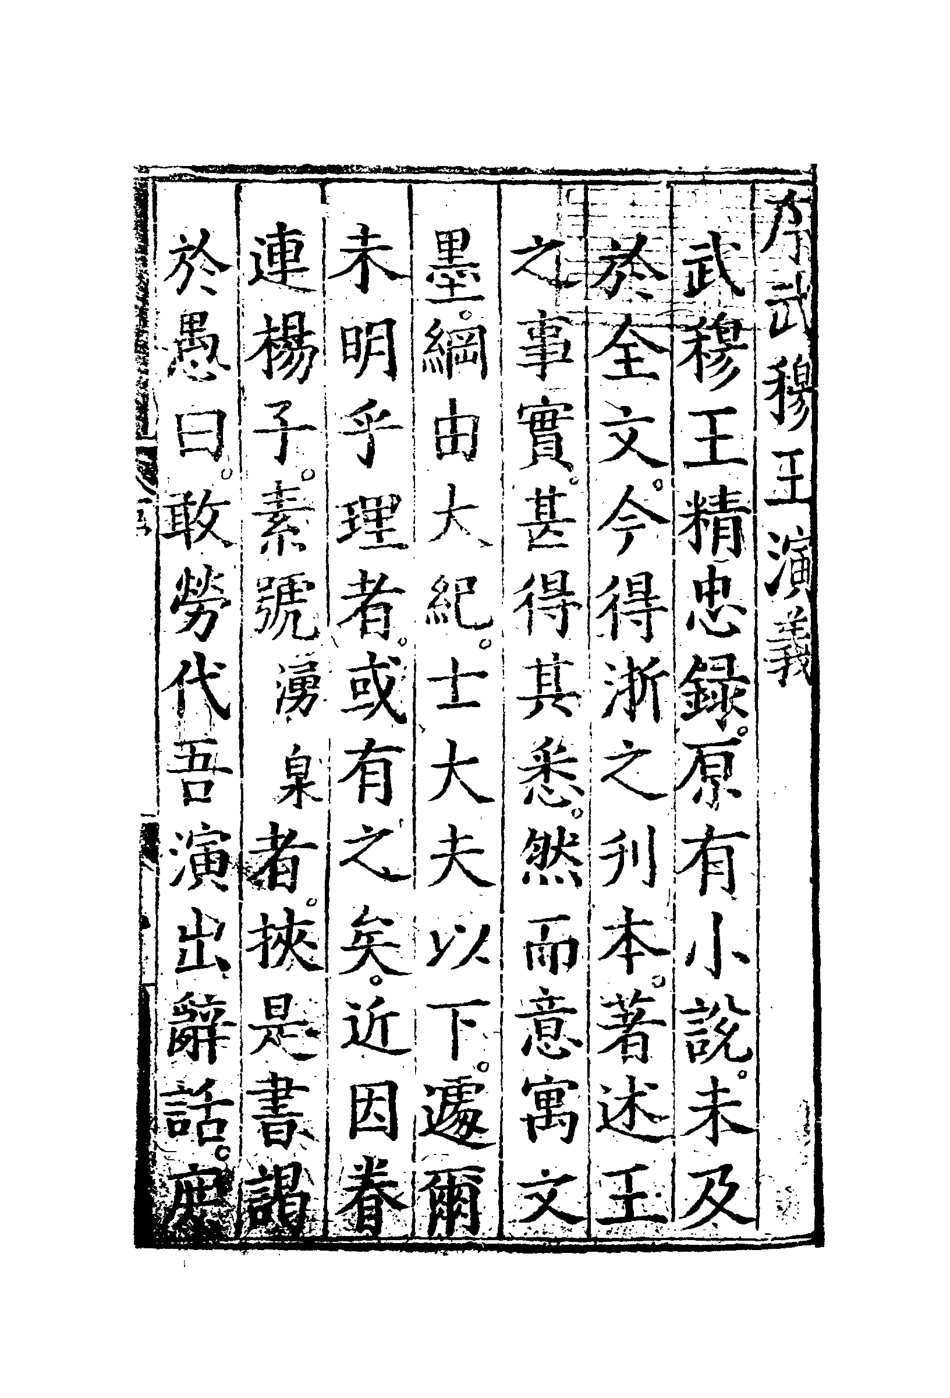 序武穆王演義
武穆王精忠録。原有小說。未及
於全文。今得浙之刋本。著述王
之事實。甚得其悉。然而意寓文
墨。綱由大紀。士大夫以下。遽爾
未明乎理者。或有之矣。近因眷
連楊子。素號湧泉者。挾是書謁
於愚曰。敢勞代吾演出辭話。庶